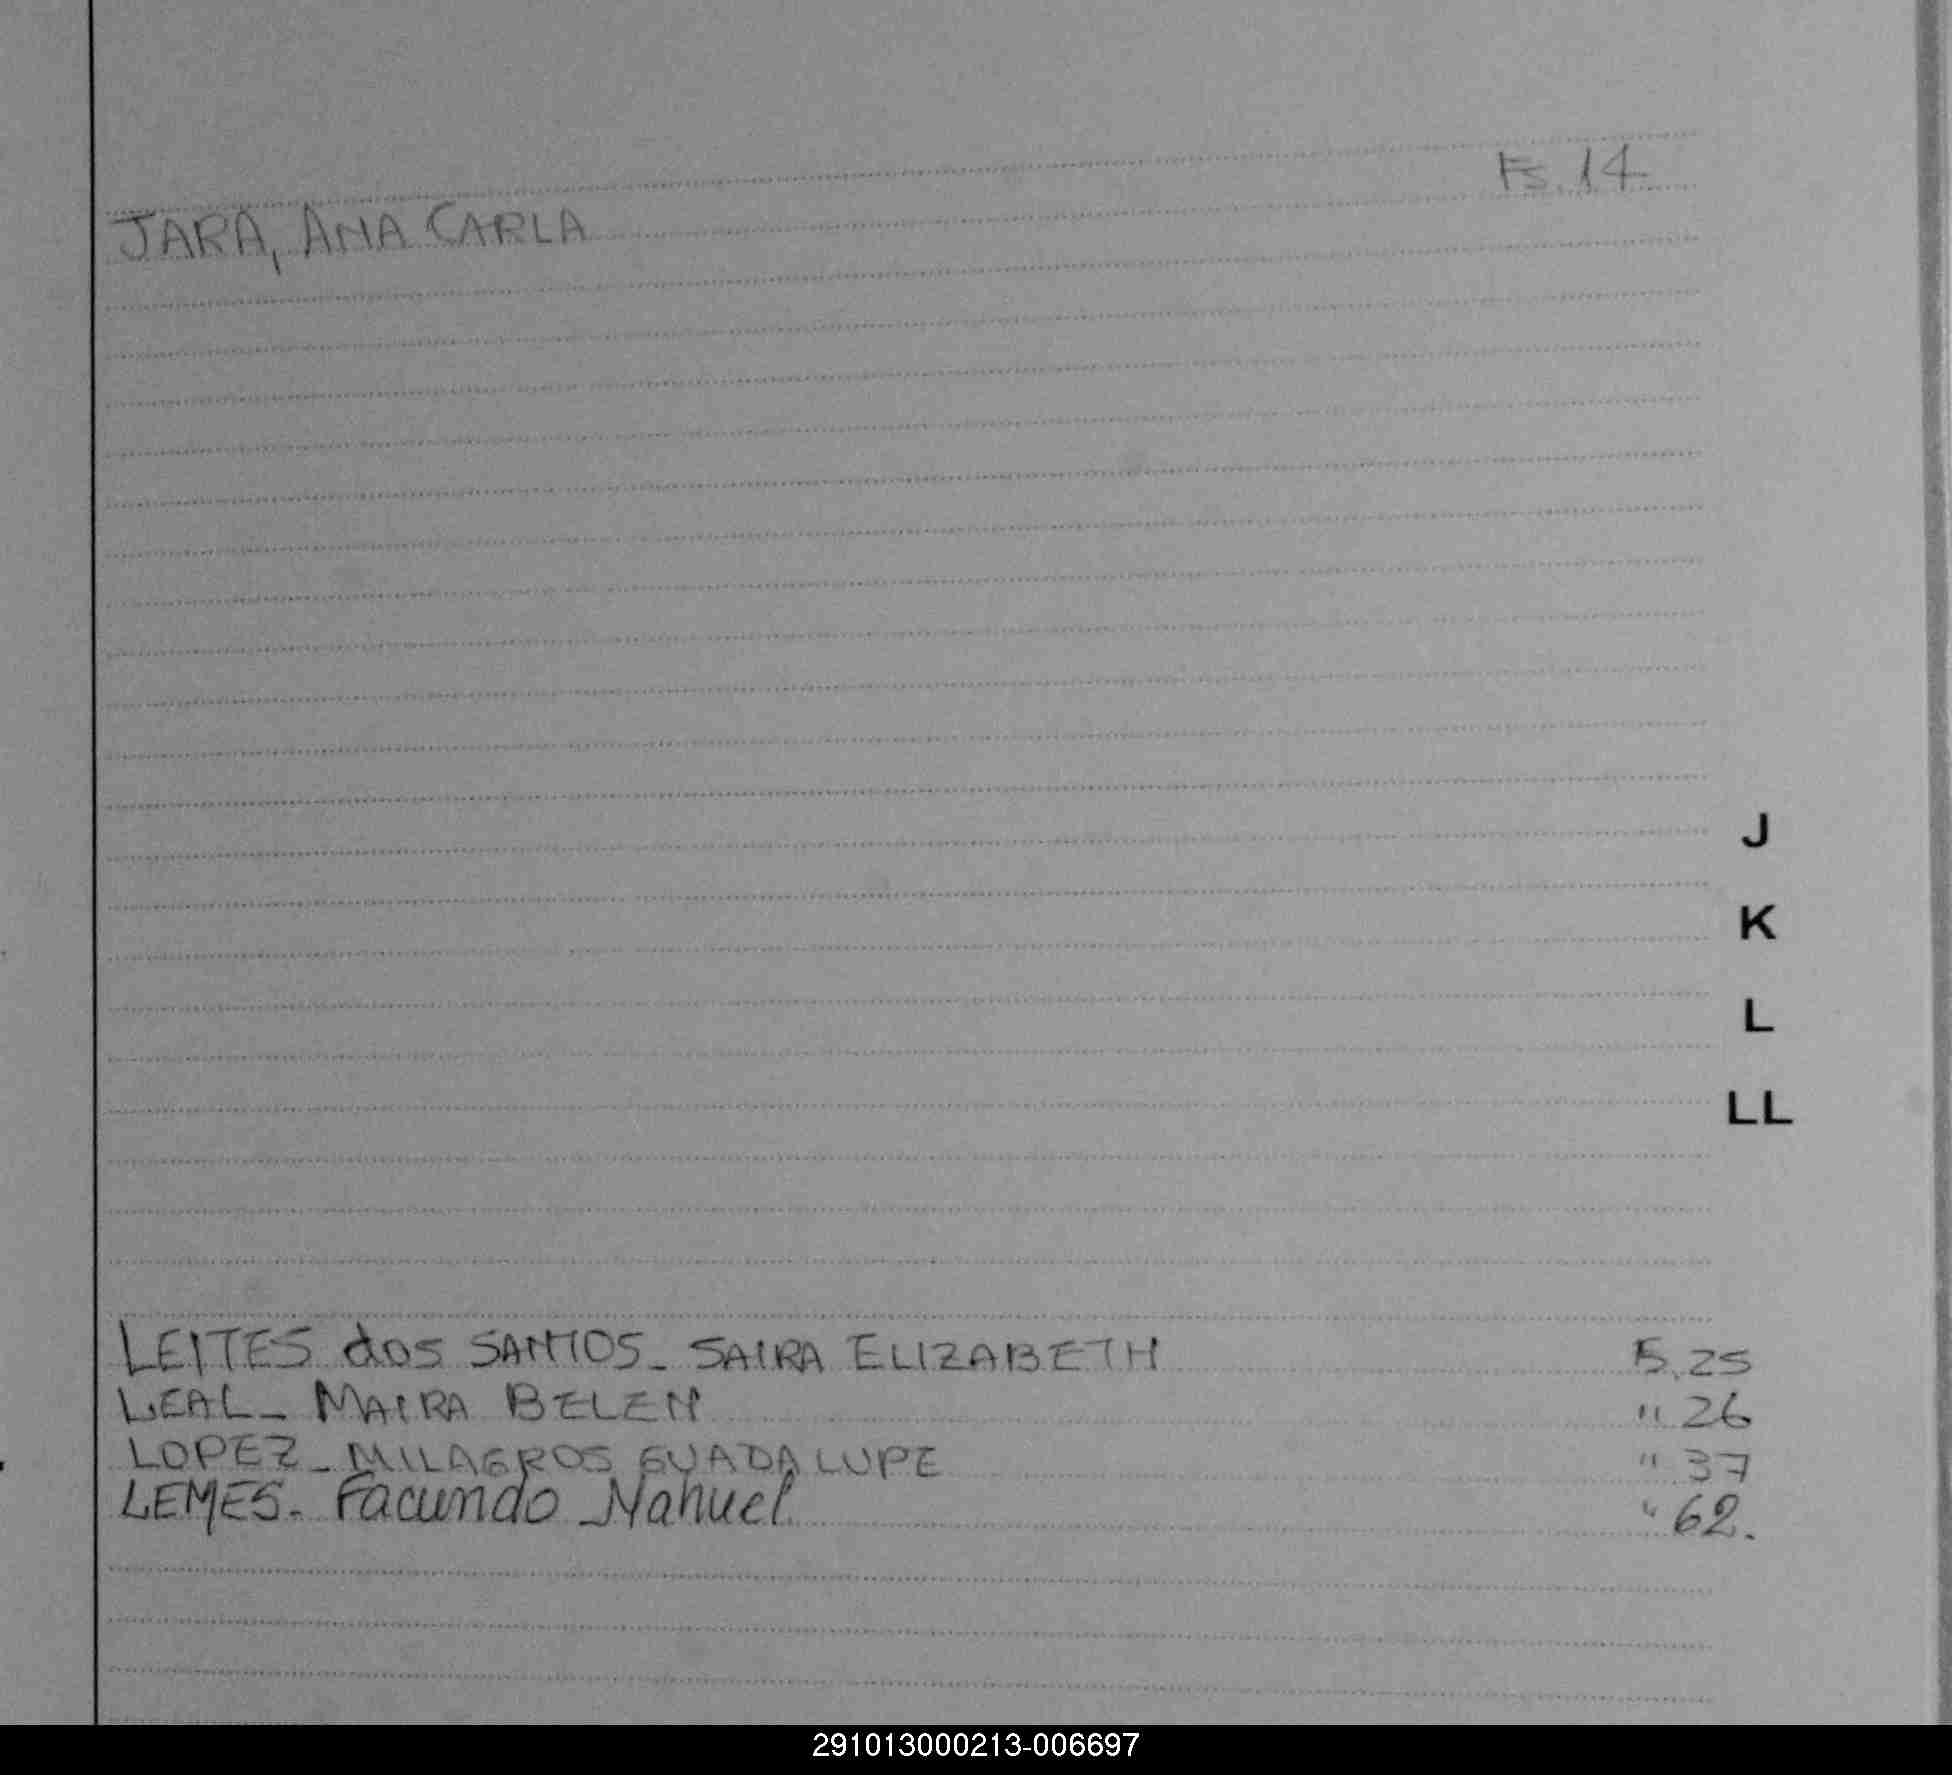 Fs. 14
JARA, ANA CARLA
J
K
L
LL
LEITES dos SANTOS_ SAIRA ELIZABETH Fs. 25
LEAL_ MAIRA BELEN " 26
LOPEZ_ MILAGROS GUADALUPE " 37
LEMES. Facundo Nahuel " 62.
291013000213-006697